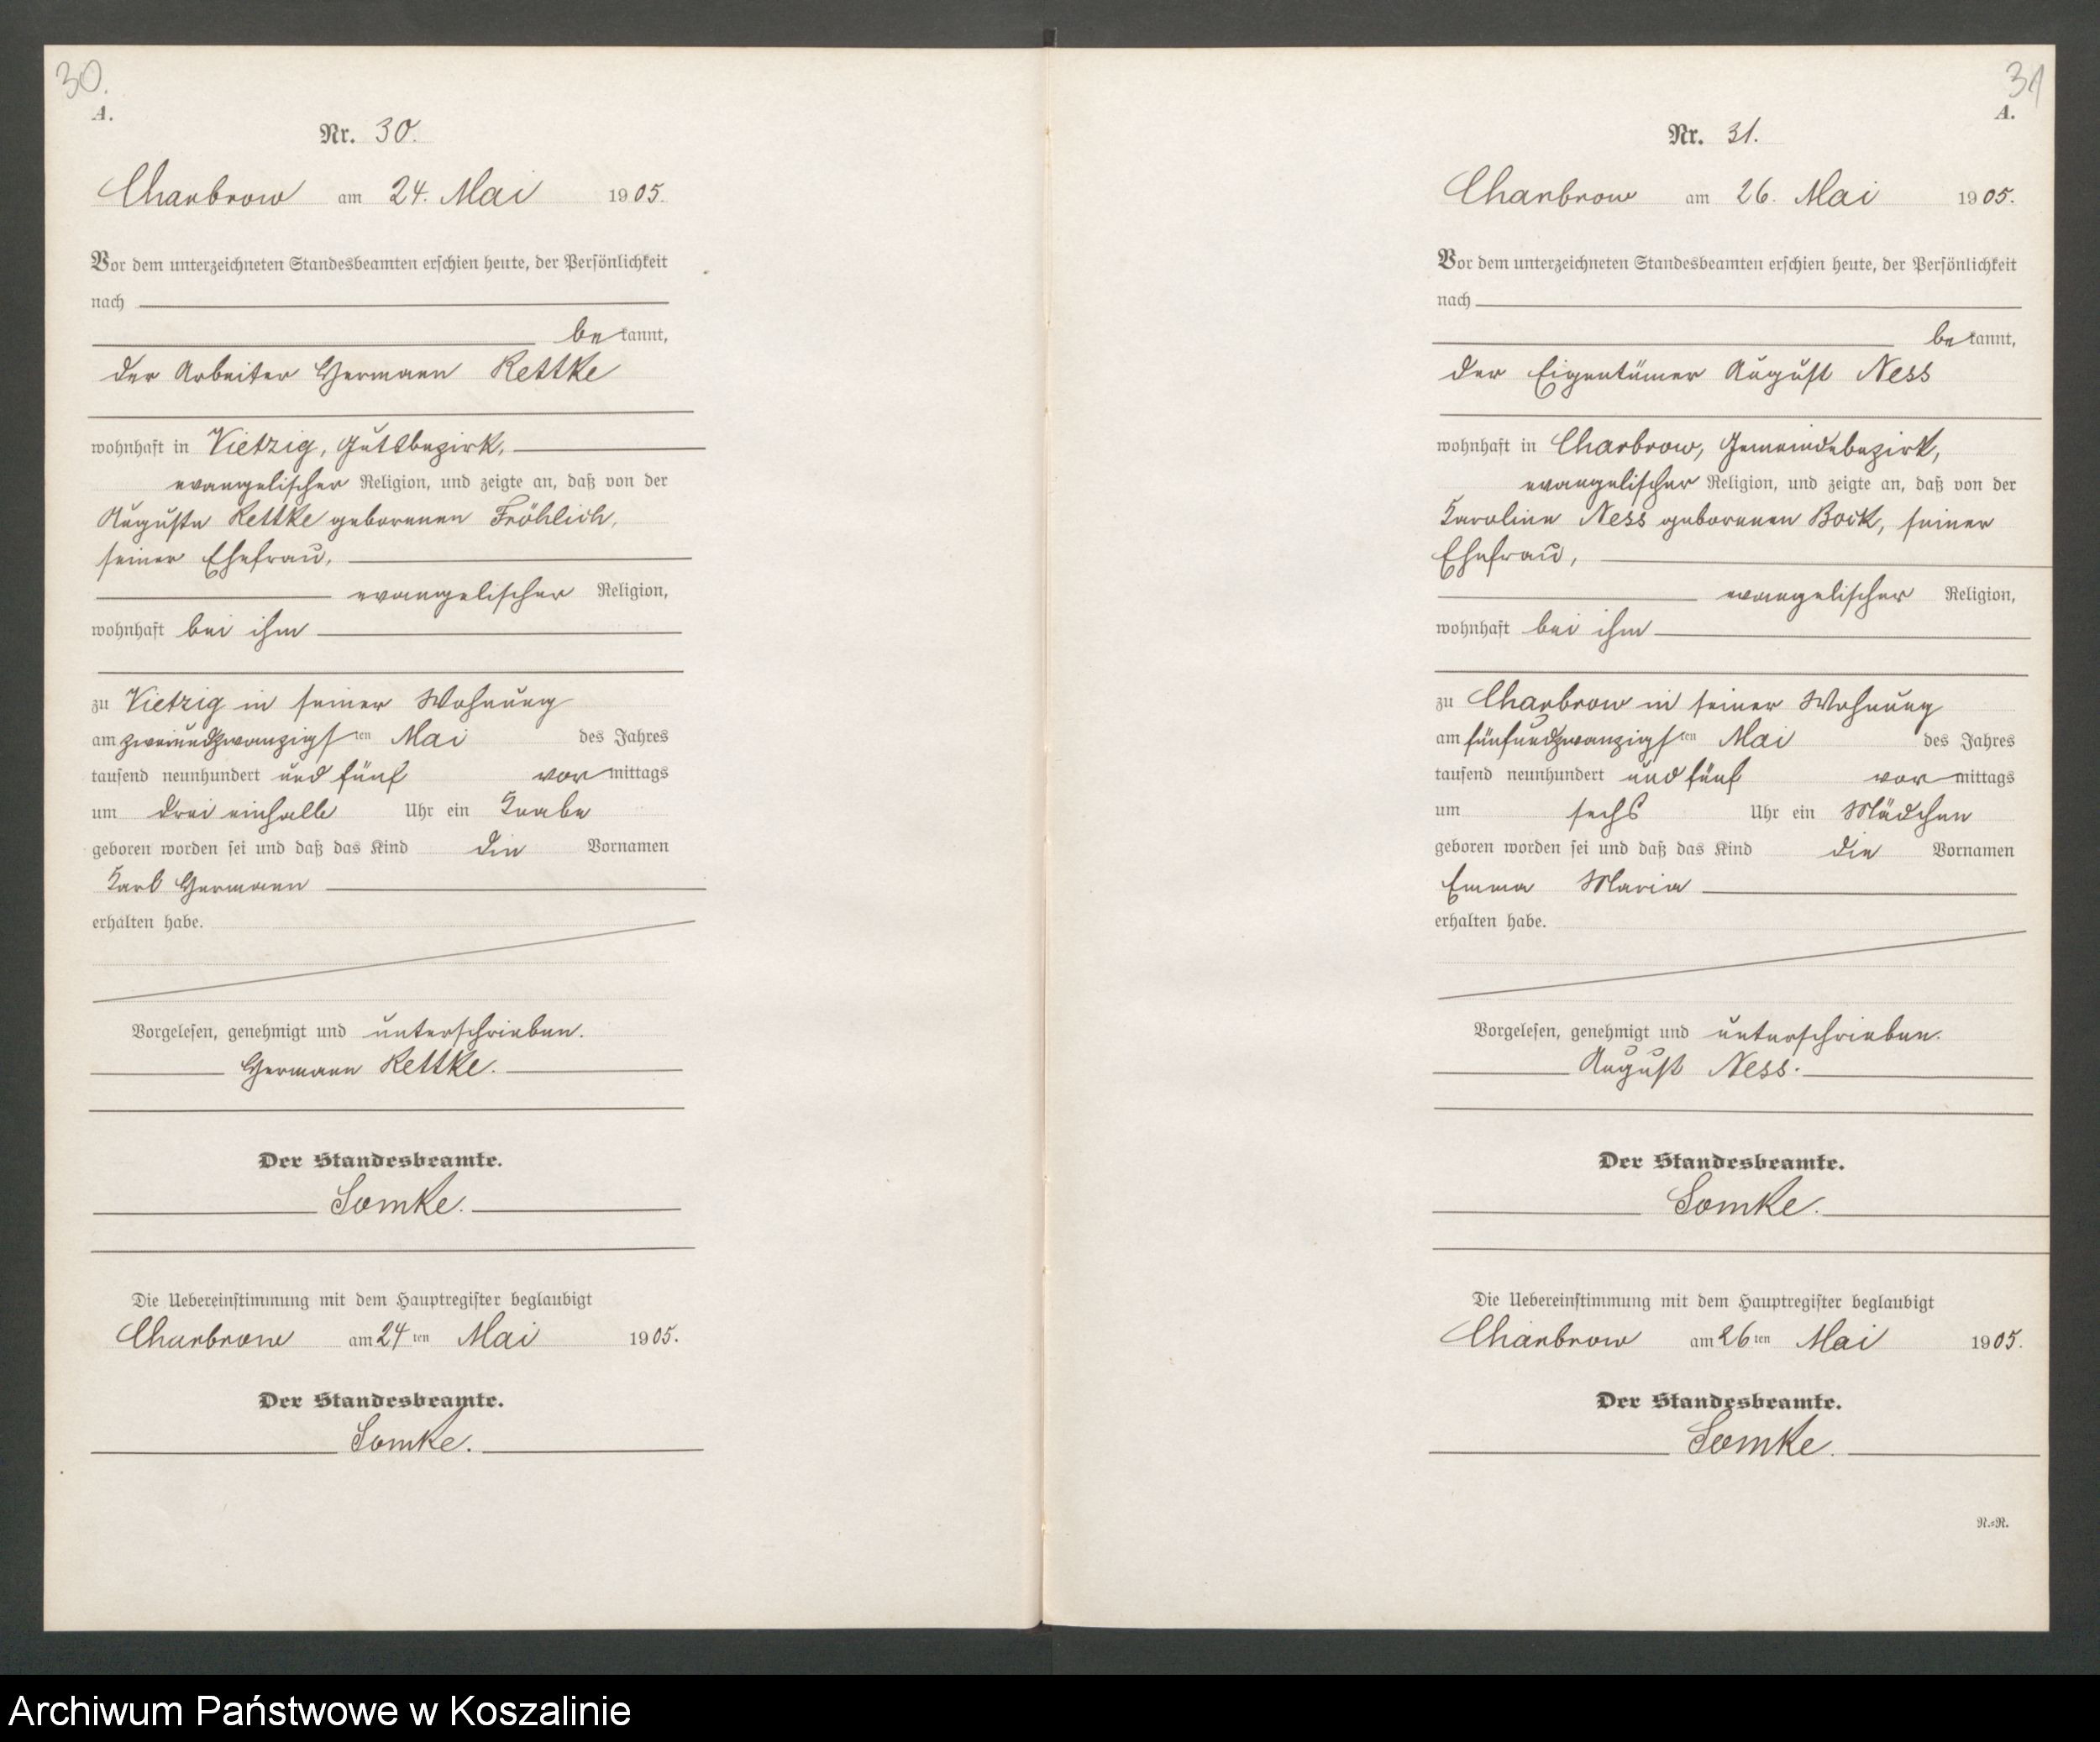 30.
A.
Nr. 30.
Charbrow am 24. Mai 1905.
Vor dem unterzeichneten Standesbeamten erschien heute, der Persönlichkeit
nach
bekannt,
der Arbeiter Hermann Rettke
wohnhaft in Vietzig, Gutsbezirk,
evangelischer Religion, und zeigte an, daß von der
Auguste Rettke geborenen Fröhlich,
seiner Ehefrau,
evangelischer Religion,
wohnhaft bei ihm
zu Vietzig in seiner Wohnung
am zweiundzwanzigsten Mai des Jahres
tausend neunhundert und fünf vormittags
um drei einhalb Uhr ein Knabe
geboren worden sei und daß das Kind die Vornamen
Karl Hermann
erhalten habe.
Vorgelesen, genehmigt und unterschrieben.
Hermann Rettke.
Der Standesbeamte.
Lomke.
Die Uebereinstimmung mit dem Hauptregister beglaubigt
Charbrow am 24ten Mai 1905.
Der Standesbeamte.
Lomke.
31
A.
Nr. 31.
Charbrow am 26. Mai 1905.
Vor dem unterzeichneten Standesbeamten erschien heute, der Persönlichkeit
nach
bekannt,
der Eigentümer August Ness
wohnhaft in Charbrow, Gemeindebezirk,
evangelischer Religion, und zeigte an, daß von der
Karoline Ness geborenen Bock, seiner
Ehefrau,
evangelischer Religion,
wohnhaft bei ihm
zu Charbrow in seiner Wohnung
am fünfundzwanzigsten Mai des Jahres
tausend neunhundert und fünf vormittags
um sechs Uhr ein Mädchen
geboren worden sei und daß das Kind die Vornamen
Emma Maria
erhalten habe.
Vorgelesen, genehmigt und unterschrieben.
August Ness.
Der Standesbeamte.
Lomke.
Die Uebereinstimmung mit dem Hauptregister beglaubigt
Charbrow am 26ten Mai 1905.
Der Standesbeamte.
Lomke.
N.=R.
Archiwum Państwowe w Koszalinie